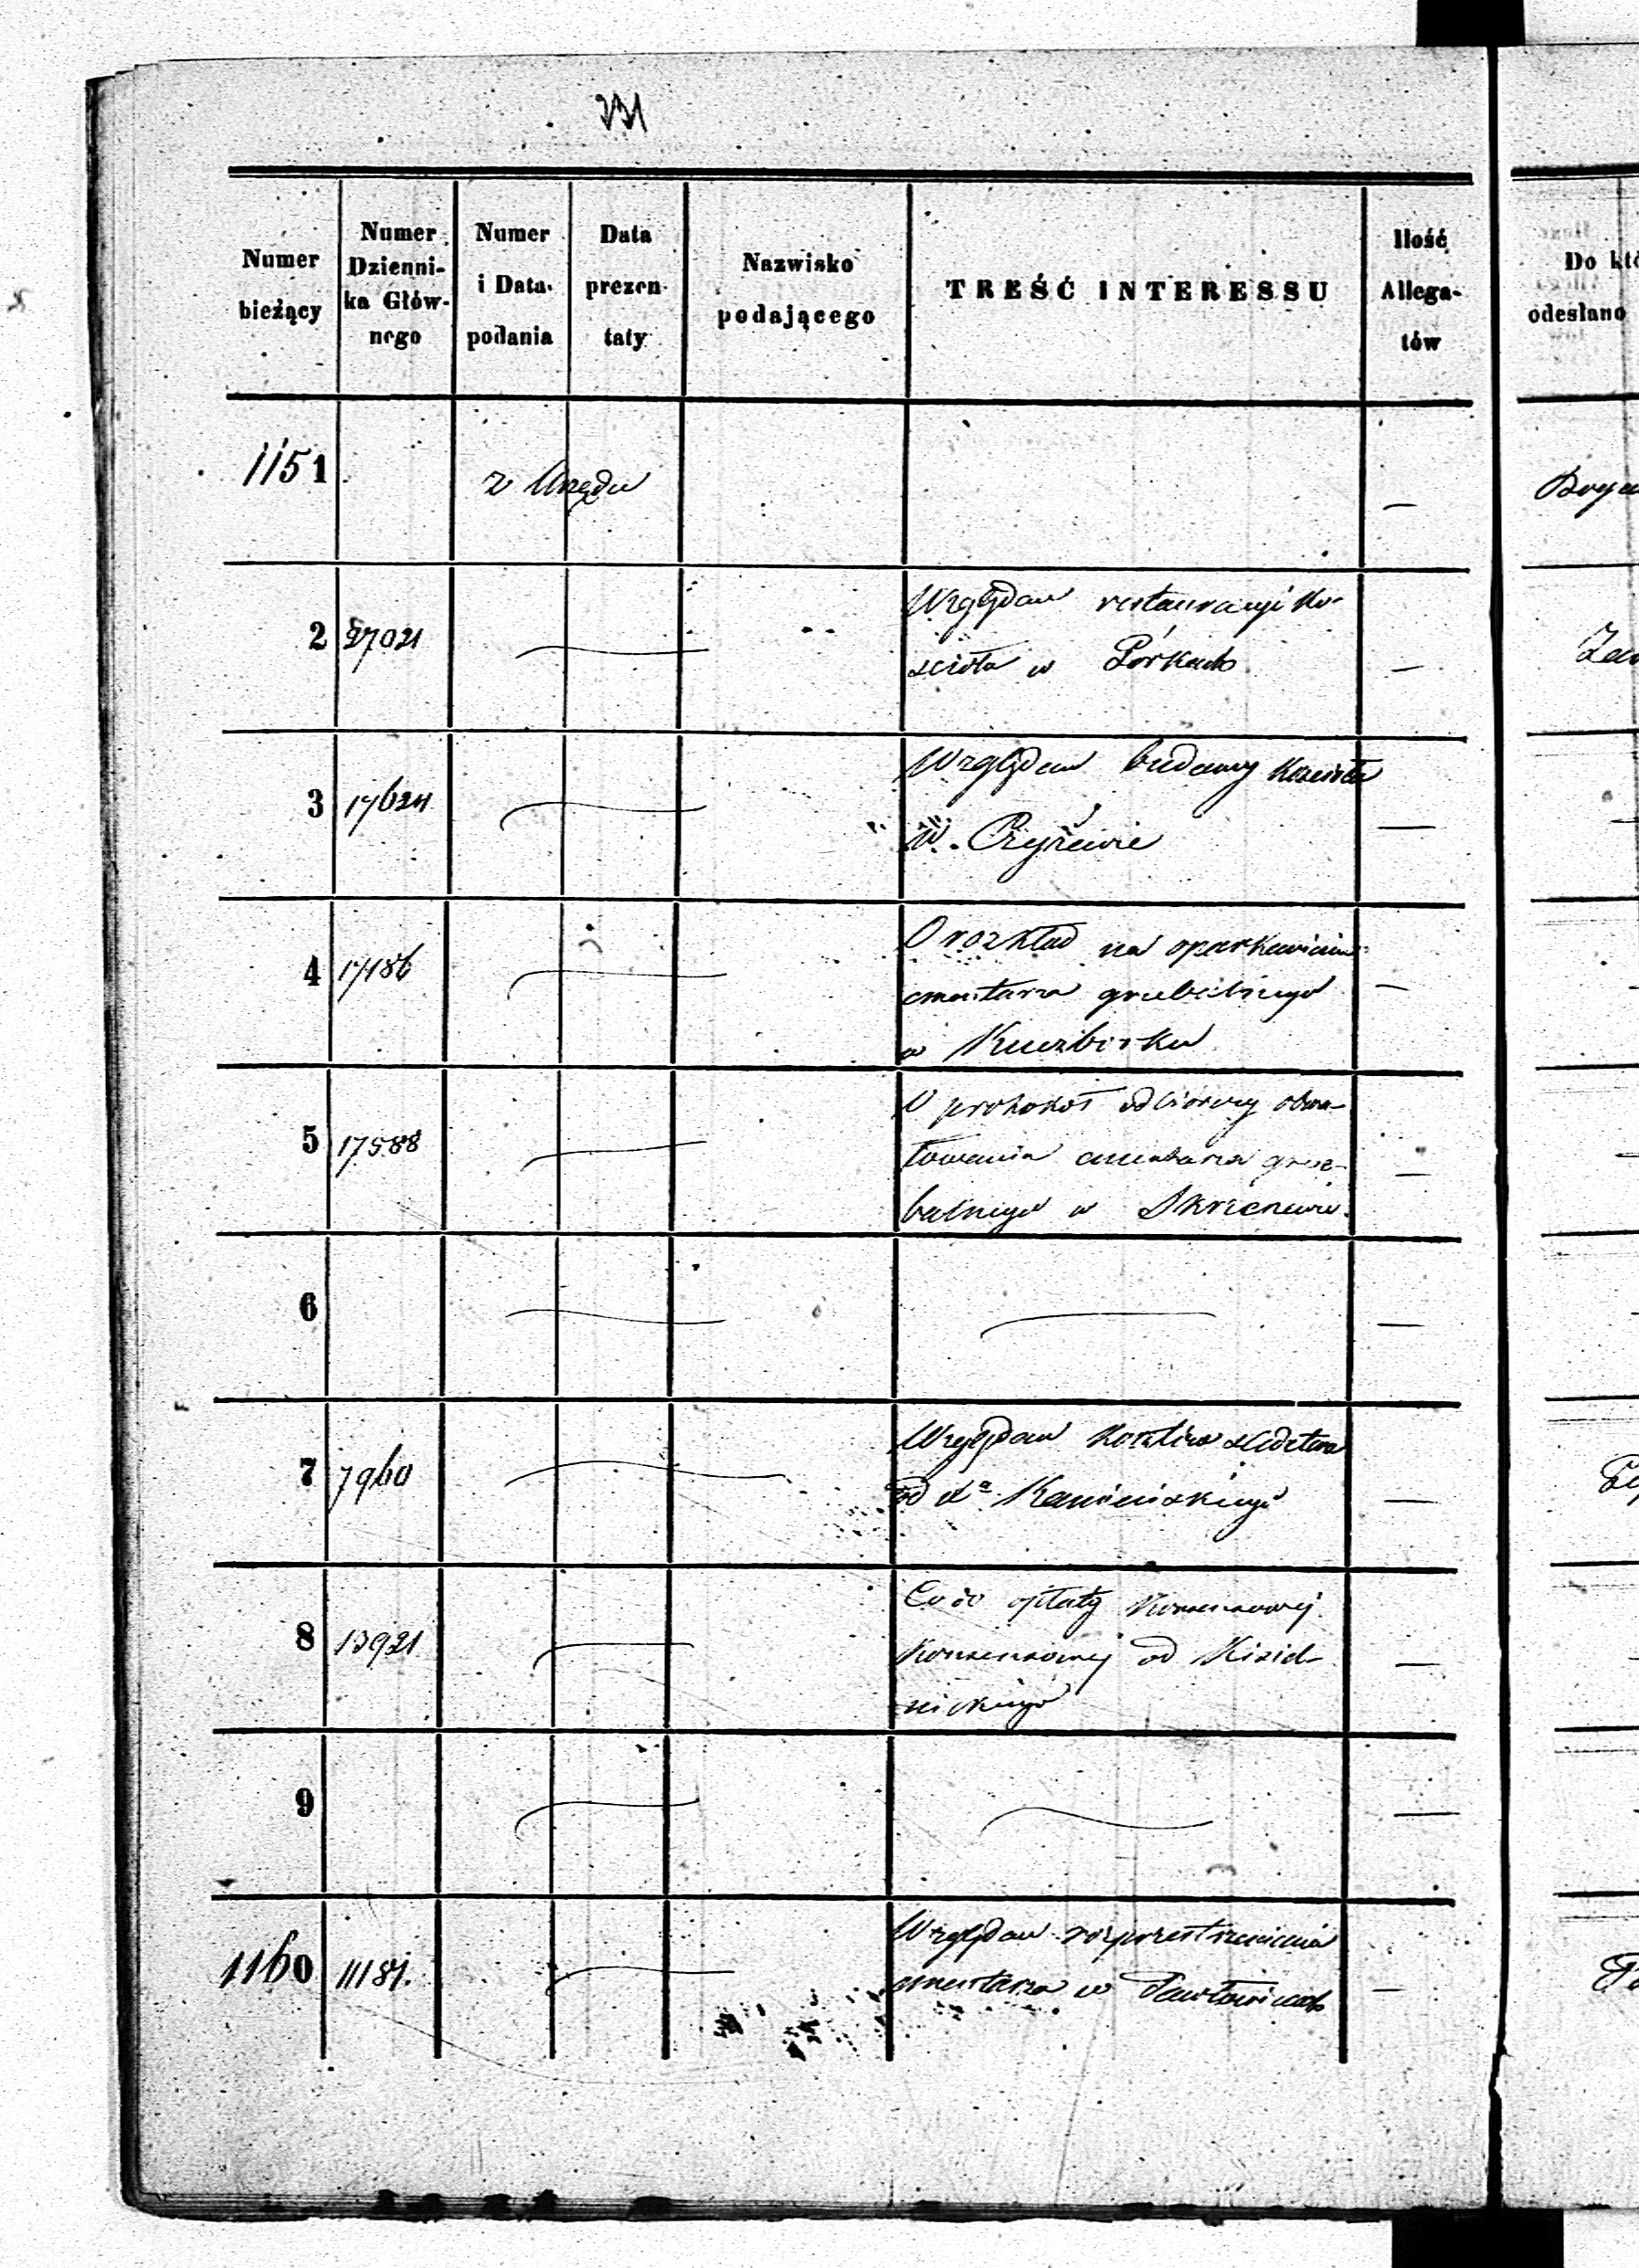 231
Numer bieżący
Numer Dzienni-ka Głów-nego
Numer i Data podania
Data prezen-taty
Nazwisko podającego
TREŚĆ INTERESSU
Ilość Allega-tów
Do któ
odesłano
1151 z Urzędu —
2 27021 — Względem restauracyi Ko-
ścioła w Górkach —
3 17624 — Względem budowy Kościoła
w Czyżewie —
4 17186 — O rozkład na oparkanienie
cmentarza grzebalnego —
w Kuczborku
5 17588 — O protokół odbiorczy obmu-
rowania cmentarza grze- —
balnego w
6 — — —
7 7960 — Względem
od Xa Kamieńskiego —
8 13921 — Co do opłaty konsensowej
konsensowej od Kisiel- —
nickiego
9 — — —
1160 11181. — Względem rozprzestrzenienia
cmentarza w Pawłowicach —